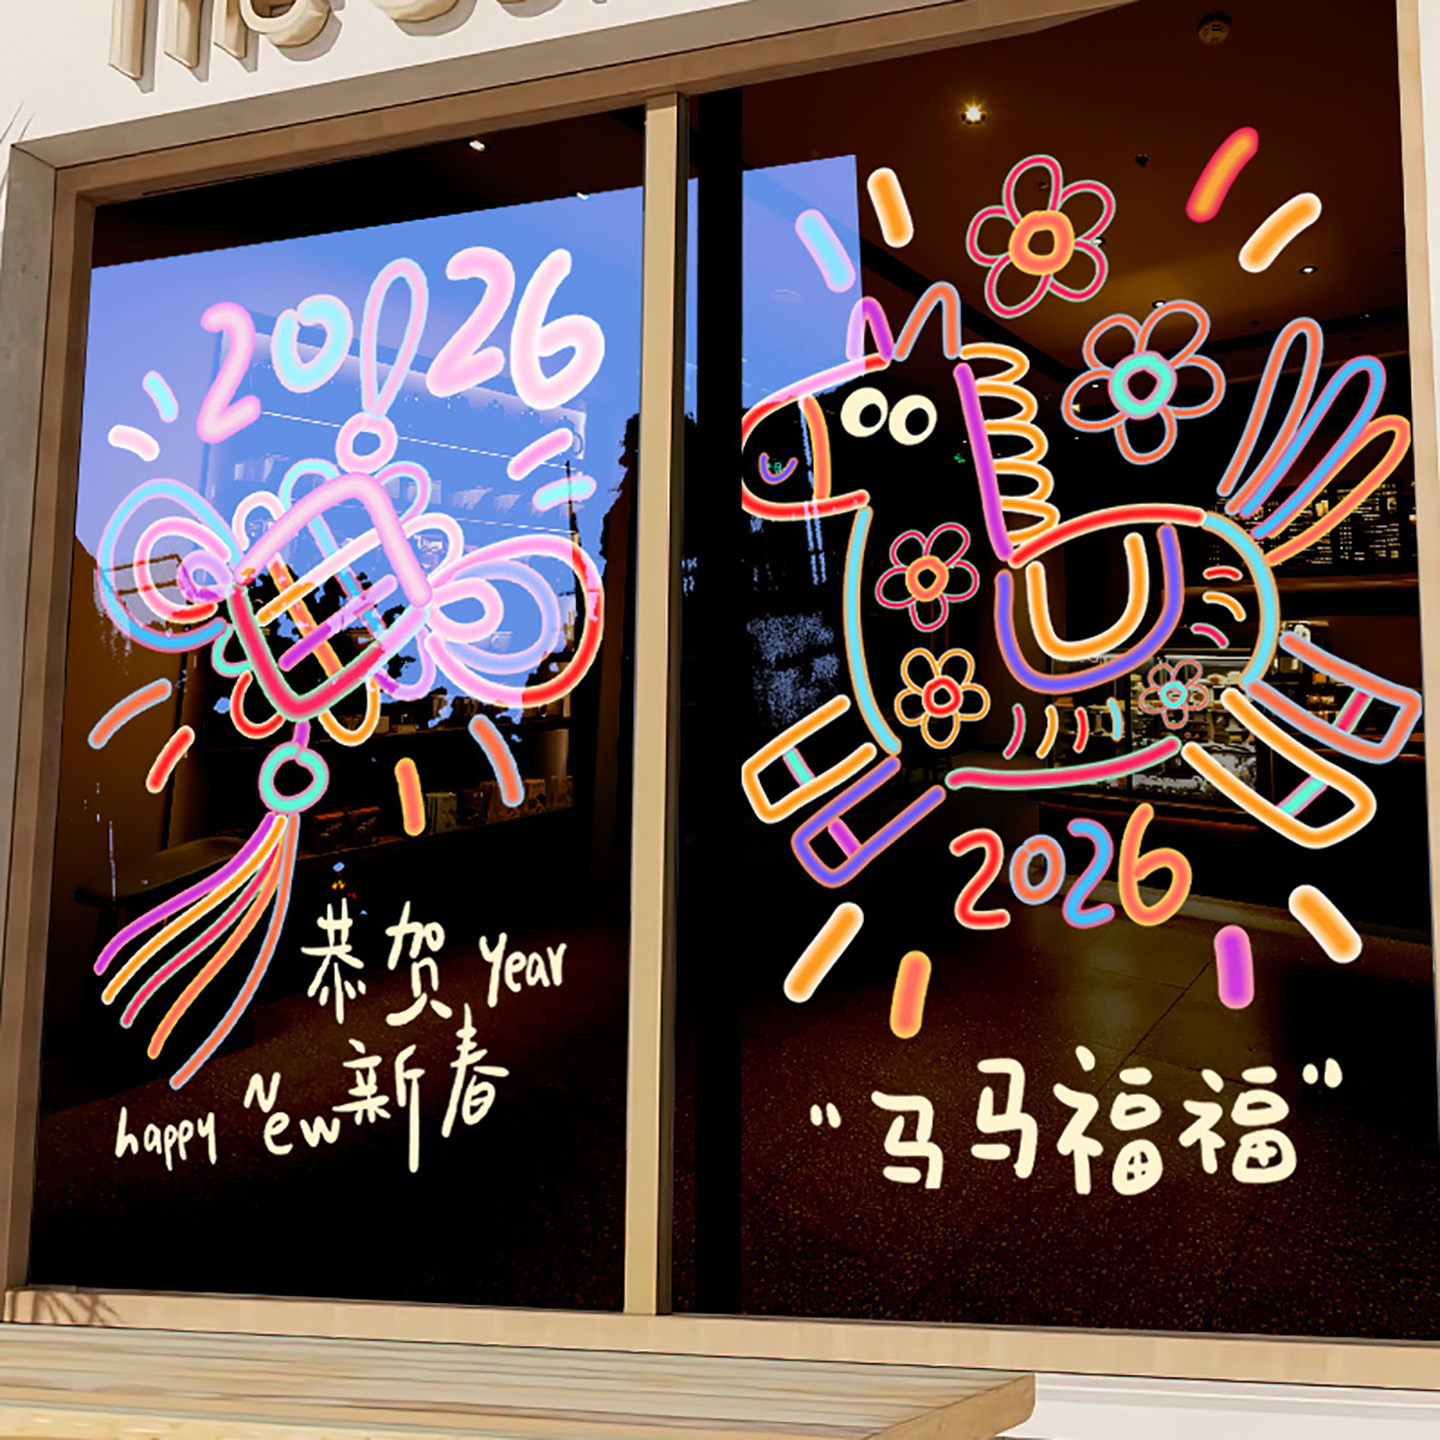 2026
恭贺 year
happy New 新春
2026
"马马福福"